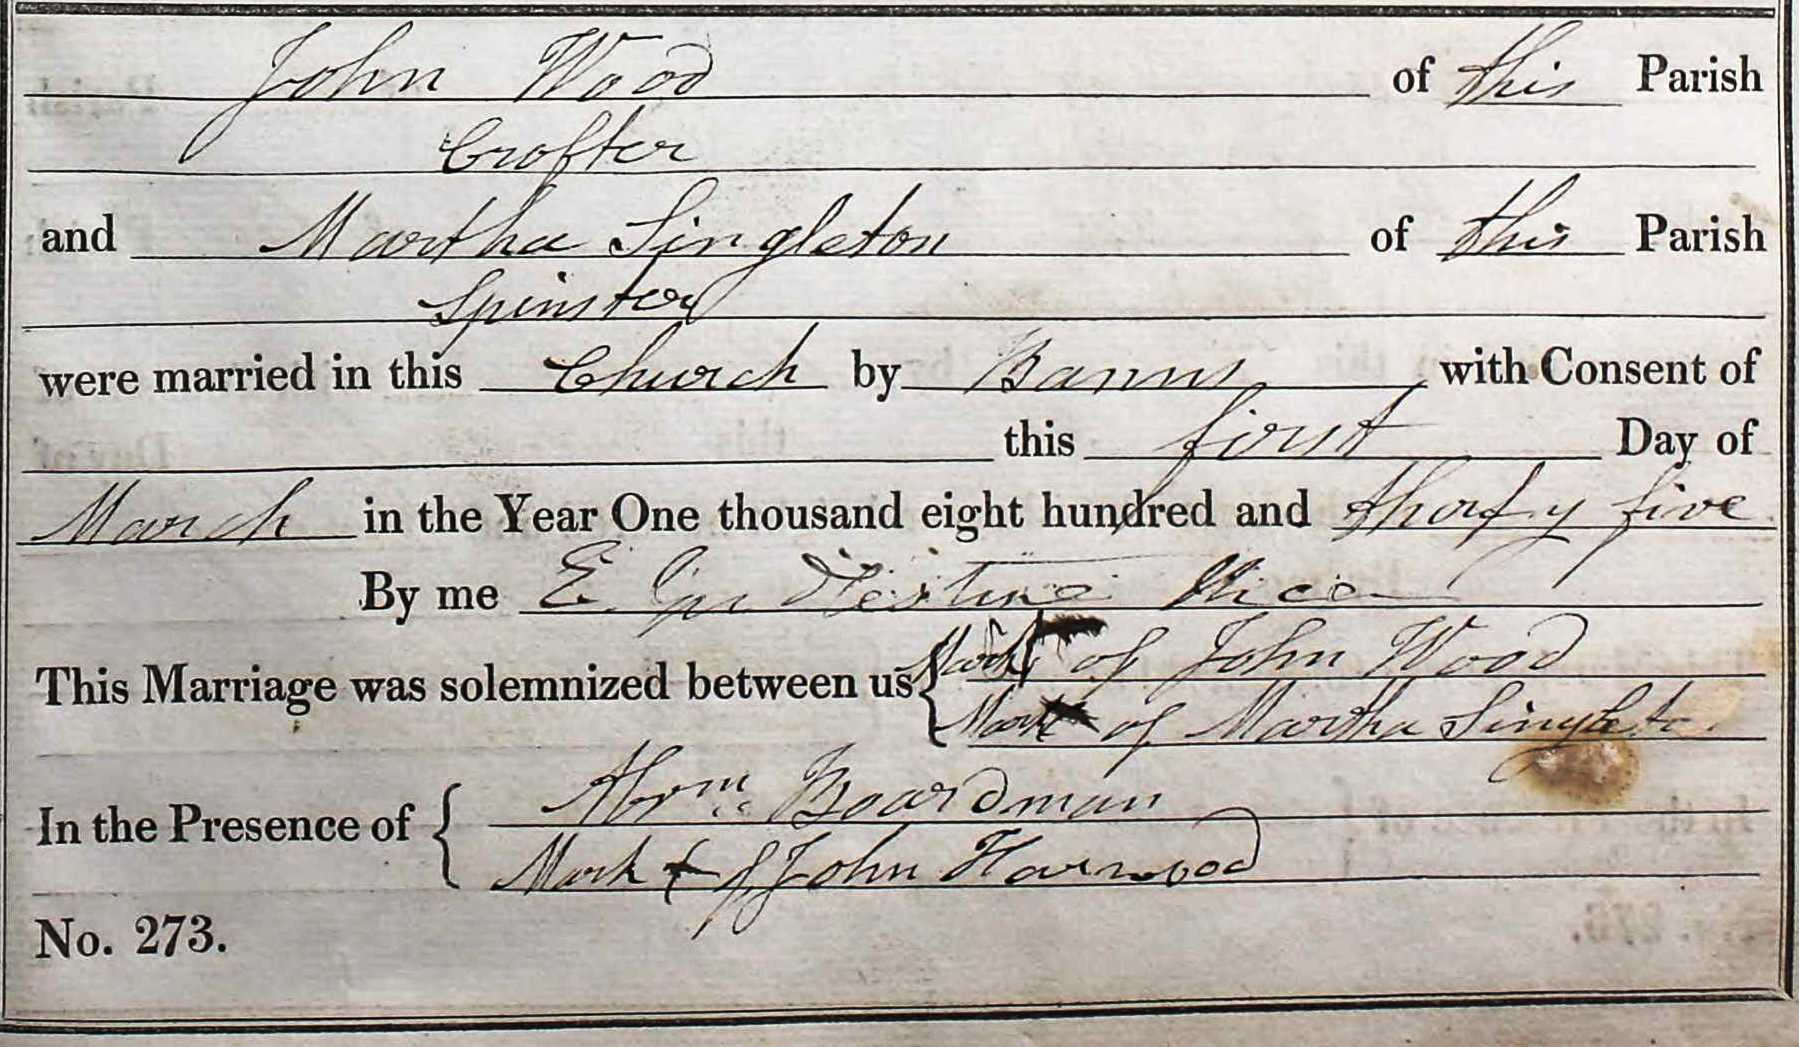 John Wood of this Parish
Crofter
and Martha Singleton of this Parish
Spinster
were married in this Church by Banns with Consent of
this first Day of
March in the Year One thousand eight hundred and thirty five
By me E.
This Marriage was solemnized between us { Mark of John Wood
Mark of Martha Singleto
In the Presence of { Abrm Boardman
Mark + of John Harwood
No. 273.